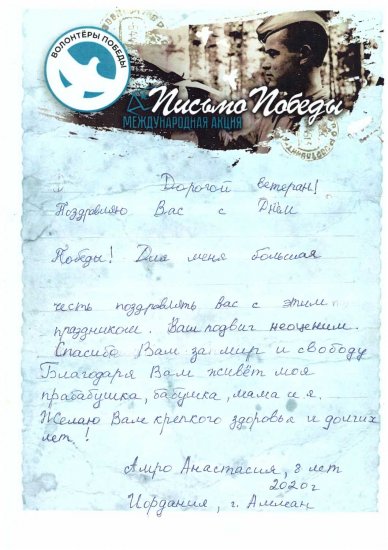 ВОЛОНТЁРЫ ПОБЕДЫ
Письмо Победы
МЕЖДУНАРОДНАЯ АКЦИЯ
Дорогой ветеран!
Поздравляю Вас с Днём
Победы! Для меня большая
честь поздравлять вас с этим
праздником. Ваш подвиг неоценим.
Спасибо Вам за мир и свободу
Благодаря Вам живёт моя
прабабушка, бабушка, мама и я.
Желаю Вам крепкого здоровья и долгих
лет!
Амро Анастасия, 8 лет
2020г
Иордания, г. Амман